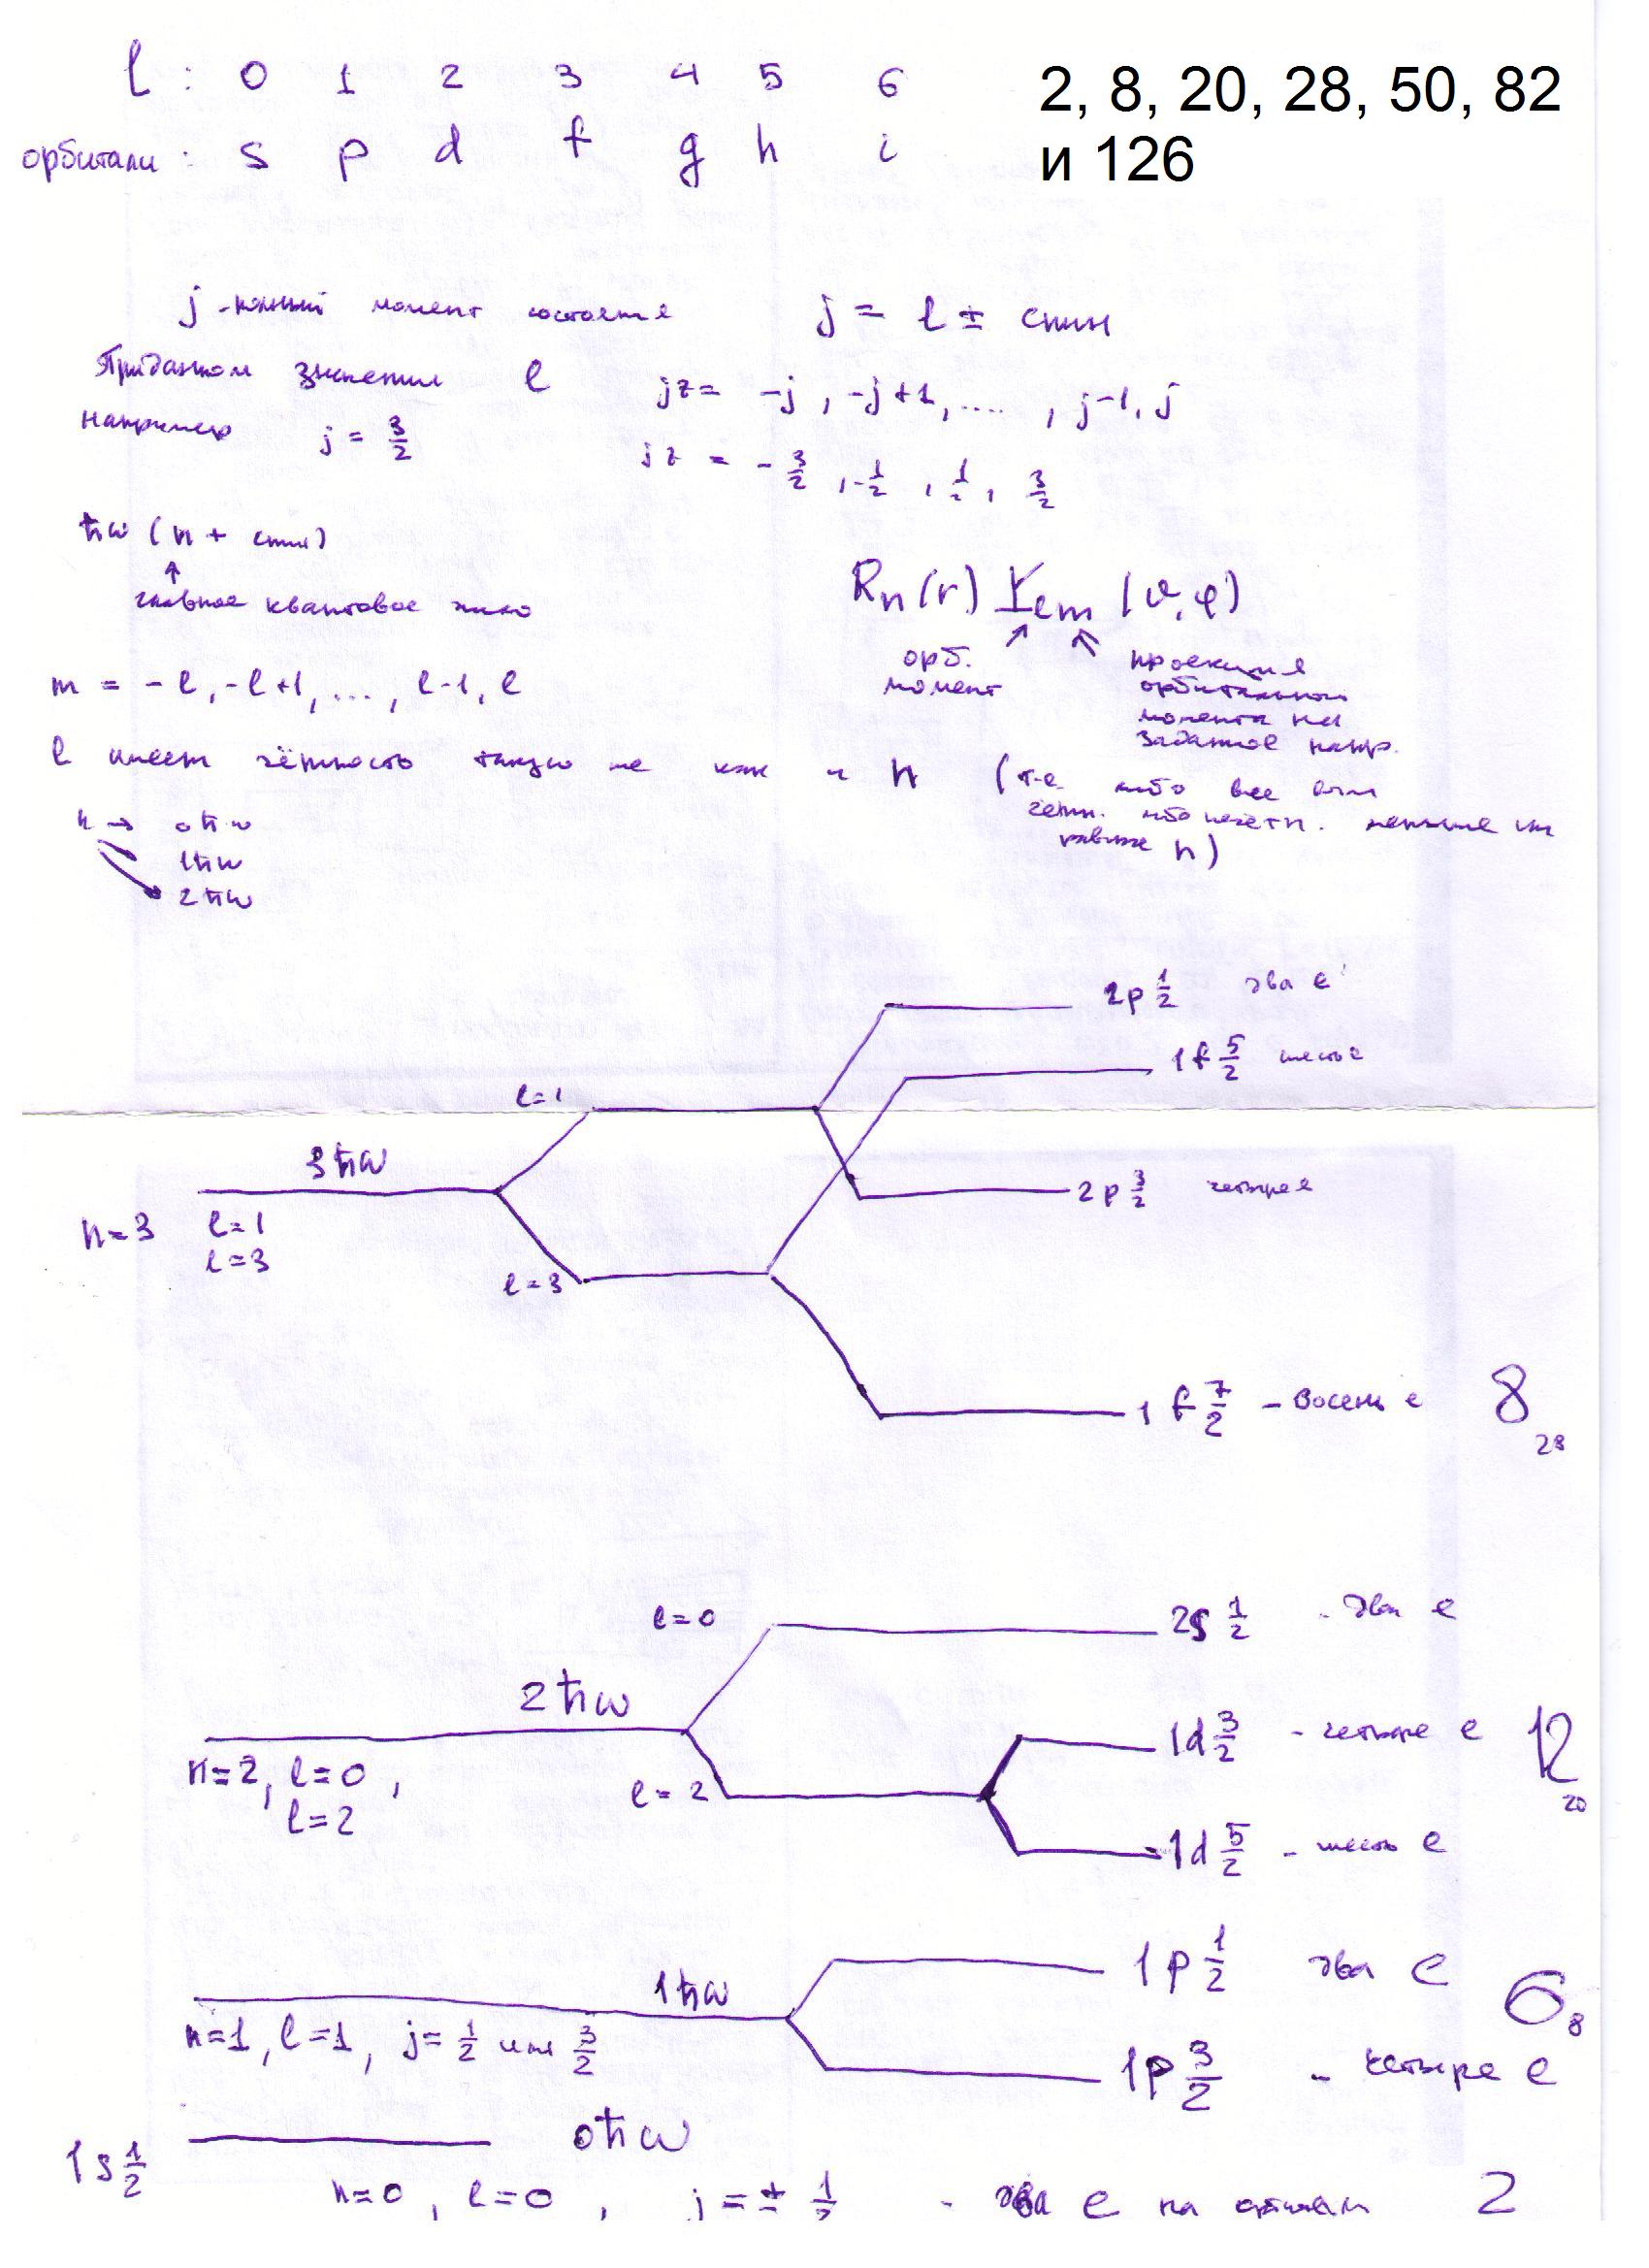 l : 0 1 2 3 4 5 6
2, 8, 20, 28, 50, 82
и 126
орбитали : s p d f g h i
j - полный момент состояния j = l ± спин
При данном значении l jz = -j, -j+1, ...., j-1, j
например j = 3/2
jz = -3/2, -1/2, 1/2, 3/2
ħω (n + спин)
↑
главное квантовое число
Rn(r) Ylm (υ,φ)
орб.
момент
проекция
орбитального
момента на
заданное напр.
m = -l, -l+1, ..., l-1, l
l имеет чётность такую же как и n (т.е. либо все
четн. либо нечетн. меньше или
равные n)
n → 0ħω
1ħω
2ħω
2p 1/2 два e
1f 5/2 шесть e
l=1
3ħω
2p 3/2 четыре e
n=3 l=1
l=3
l=3
1 f 7/2 - восемь e 8
28
l=0 2s 1/2 - два e
2ħω
1d 3/2 - четыре e 12
20
n=2, l=0,
l=2
l=2
1d 5/2 - шесть e
1p 1/2 два e
1ħω
6
8
n=1, l=1, j= 1/2 или 3/2
1p 3/2 - четыре e
0ħω
1s 1/2
n=0, l=0, j=± 1/2 - два e на орбитали 2